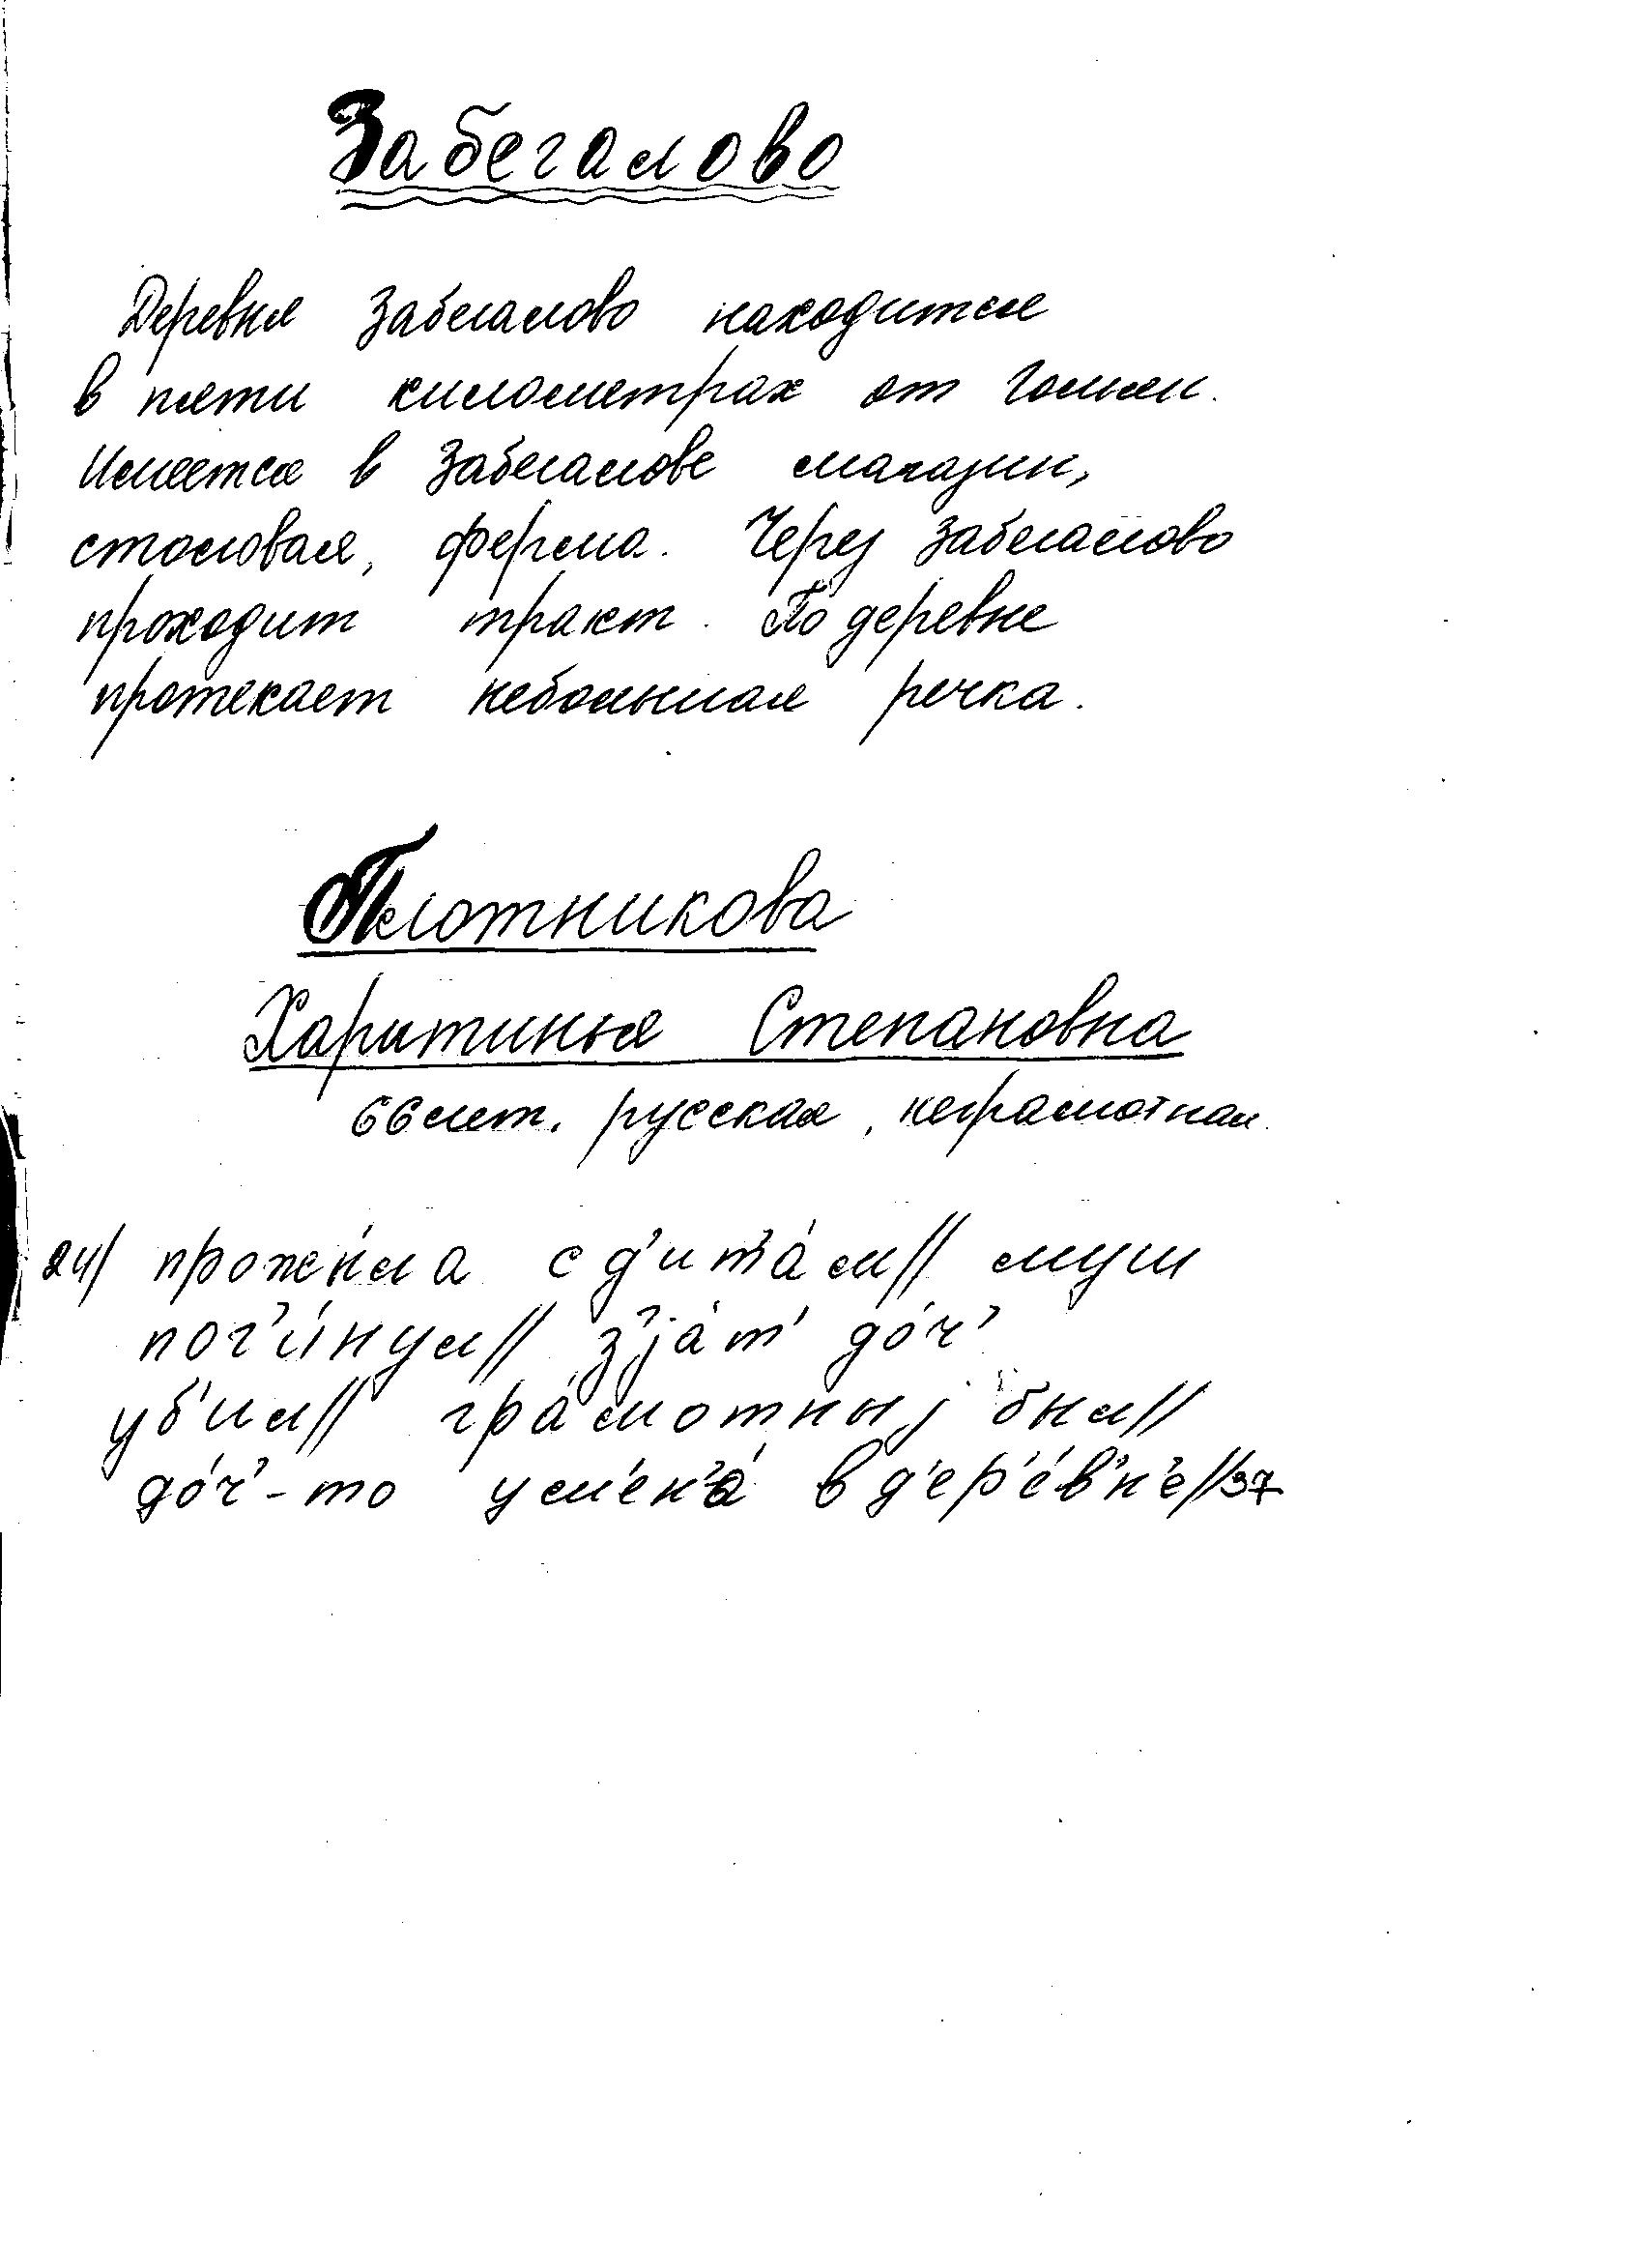 Забегалово
Деревня Забегалово находится
в пяти километрах от Гольян.
Имеется в Забегалове магазин,
столовая, ферма. Через Забегалово
проходит тракт. По деревне
протекает небольшая речка.
Плотникова
Харитинья Степановна
66 лет, русская, неграмотная.
24/ прожила с д'ит'а́м// муш
пог'и́нул// з'jа́т' до́ч'
уб'ил// гра́мотныj был//
до́ч'-то в д'ер'е́в'н'е//37